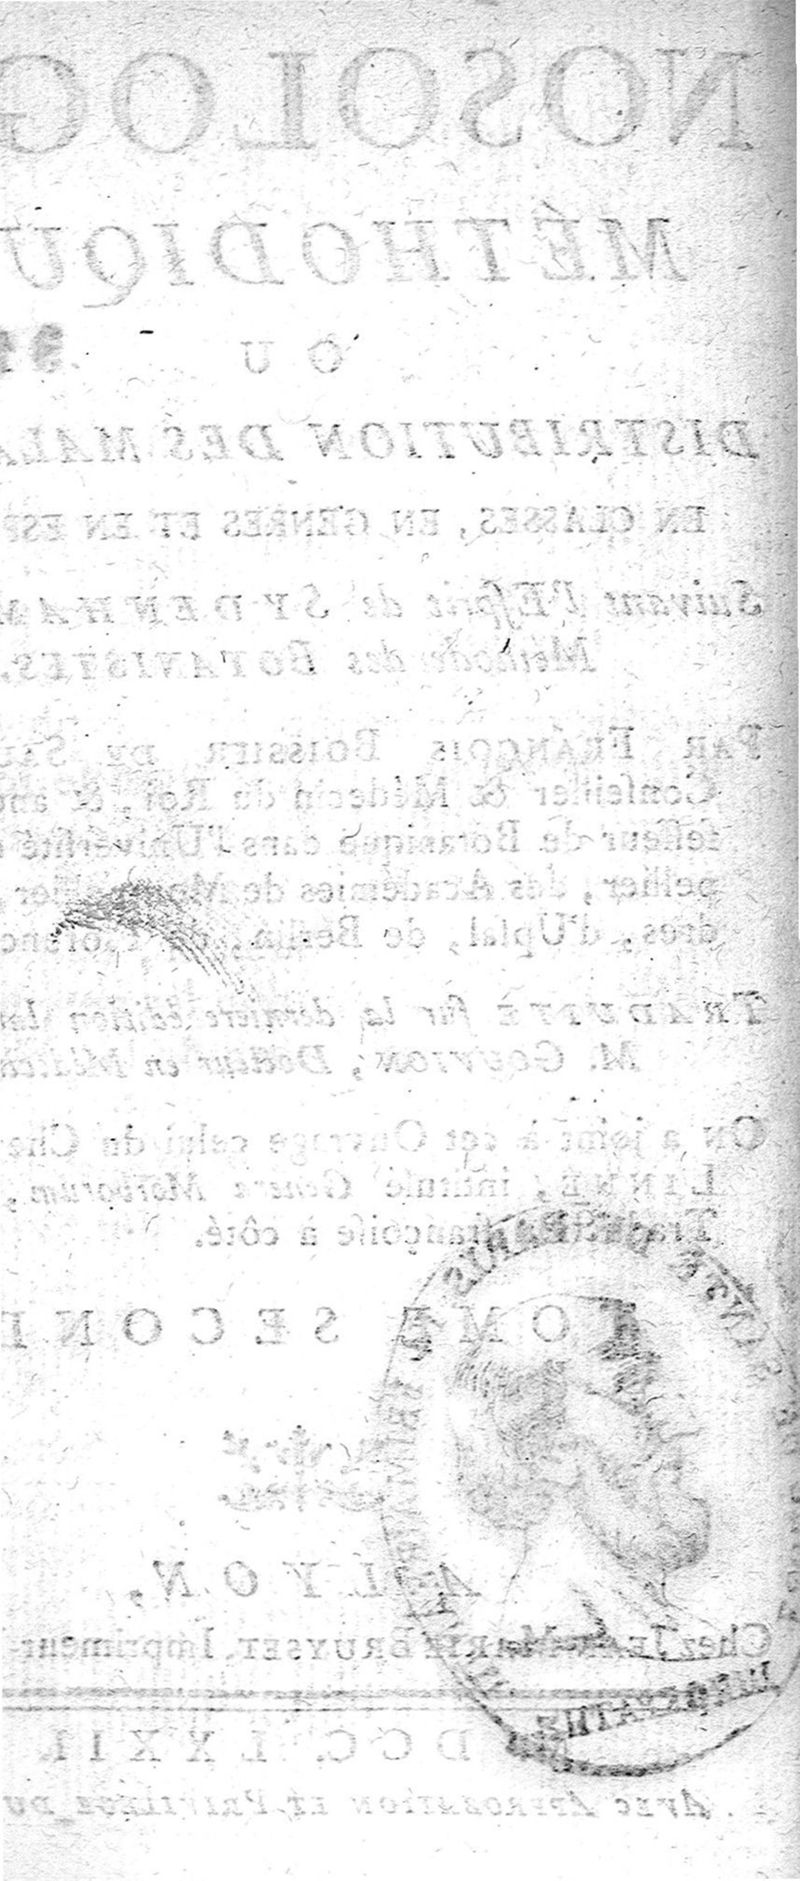 NOSOLOG
MÉTHODIQU
OU
DISTRIBUTION DES MALA
EN CLASSES, EN GENRES ET EN ESP
Suivant l'Esprit de SYDENHAM
Méthode des BOTANISTES,
PAR FRANÇOIS BOISSIER DE SAU
Conseiller & Médecin du Roi, & anc
fesseur de Botanique dans l'Université
pellier, des Académies de
dres, d'Upsal, de Berlin,
TRADUITE sur la derniere édition lat
M. GOUVION, Docteur en Médeci
ON a joint à cet Ouvrage celui du Che
LINNÉ, intitulé Genera Morborum,
françoise à côté.
TOME SECOND
A LYON,
Chez JEAN-MARIE BRUYSET, Imprimeur-
DCC. LXXII.
AVEC APPROBATION ET PRIVILEGE DU